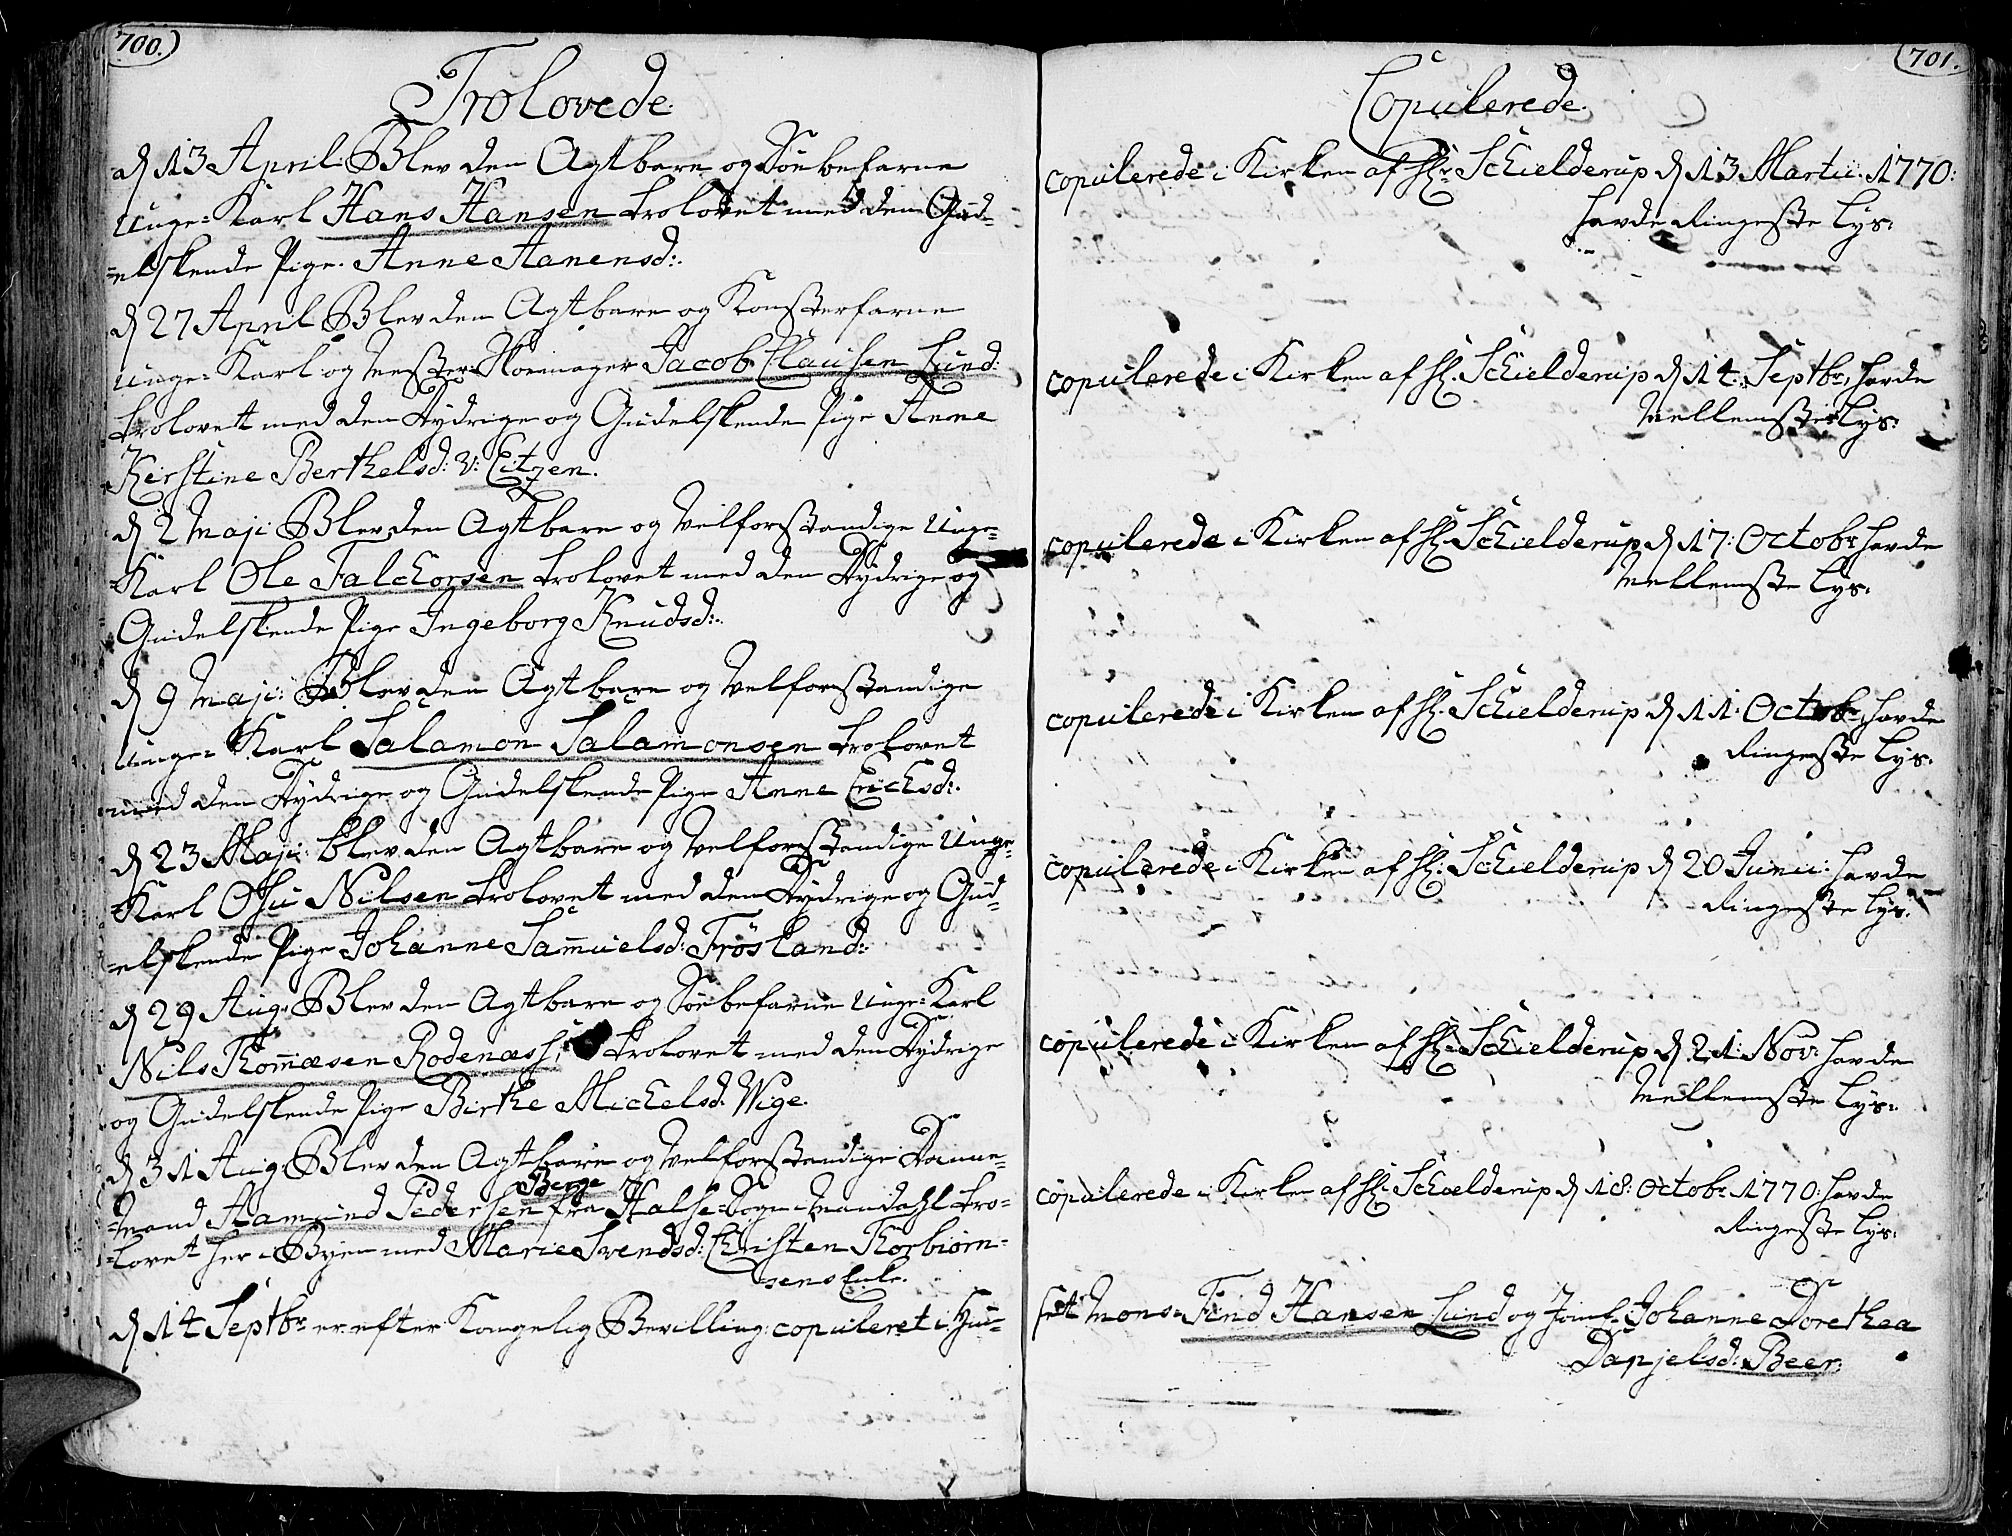 700.)
Trolovede.
d 13 April: Blev den Agtbare og Söebefarne
Unge= Karl Hans Hansen trolovet med den Gud=
=elskende Pige. Anne Aanensd:.
d 27 April Blev den Agtbare og Konsterfarne
Unge= Karl og Mester Skoemager Jacob Clausen Lund:
trolovet med den Dydrige og Gudelskende Pige Anne
Kirstine Berthelsd: v: Eitzen.
d 2 Maji Blev den Agtbare og Velforstandige Unge=
Karl Ole Falchorsen trolovet med den Dydrige og
Gudelskende Pige Ingeborg Knudsd:.
d 9 Maji: Blev den Agtbare og Velforstandige
Unge= Karl Salamon Salamonsen trolovet
med den Dydrige og Gudelskende Pige Anne Erichsd:.
d 23 Maji: blev den Agtbare og Velforstandige Unge=
Karl Osu Nilsen trolovet med den Dydrige og Gud=
=elskende Pige Johanne Samuelsd: Frösland:
d 29 Aug: Blev den Agtbare og Söebefarne Unge= Karl
Nils Thomæsen Rodenæss: trolovet med den Dydrige
og Gudelskende Pige Birthe Michelsd. Wige.
d 31 Aug: Blev den Agtbare og Velforstandige Danne=
Berge
=Mand Aamund Pedersen fra Halse= Sogn i Mandahl tro=
=lovet her i Byen med Marie Svendsd: Christen Thorbiörn=
sens Enke.
d 14 Septbr er efter Kongelig Bevilling: copuleret i Huu=
701.
Copulerede.
copulerede i Kirken af Hr. Schielderup d 13 Martii. 1770:
havde Ringeste Lys:
copulerede i Kirken af Hr. Schielderup d 14: Septbr, havde
Mellemste Lys:
copulerede i Kirken af Hr. Schielderup d 17: Octobr havde
Mellemste Lys.
copulerede i Kirken af Hr. Schielderup d 11: Octobr, havde
Ringeste Lys.
copulerede i Kirken af Hr: Schielderup d 20 Junii: havde
Ringeste Lys.
copulerede i Kirken af Hr. Schielderup d 21: Nov: havde
Mellemste Lys.
copulerede i Kirken af Hr: Schielderup d 18: Octobr 1770: havde
Ringeste Lys.
set Mons= Find Hansen Lund og Jomf= Johanne Dorethea
Danjelsd: Beer.